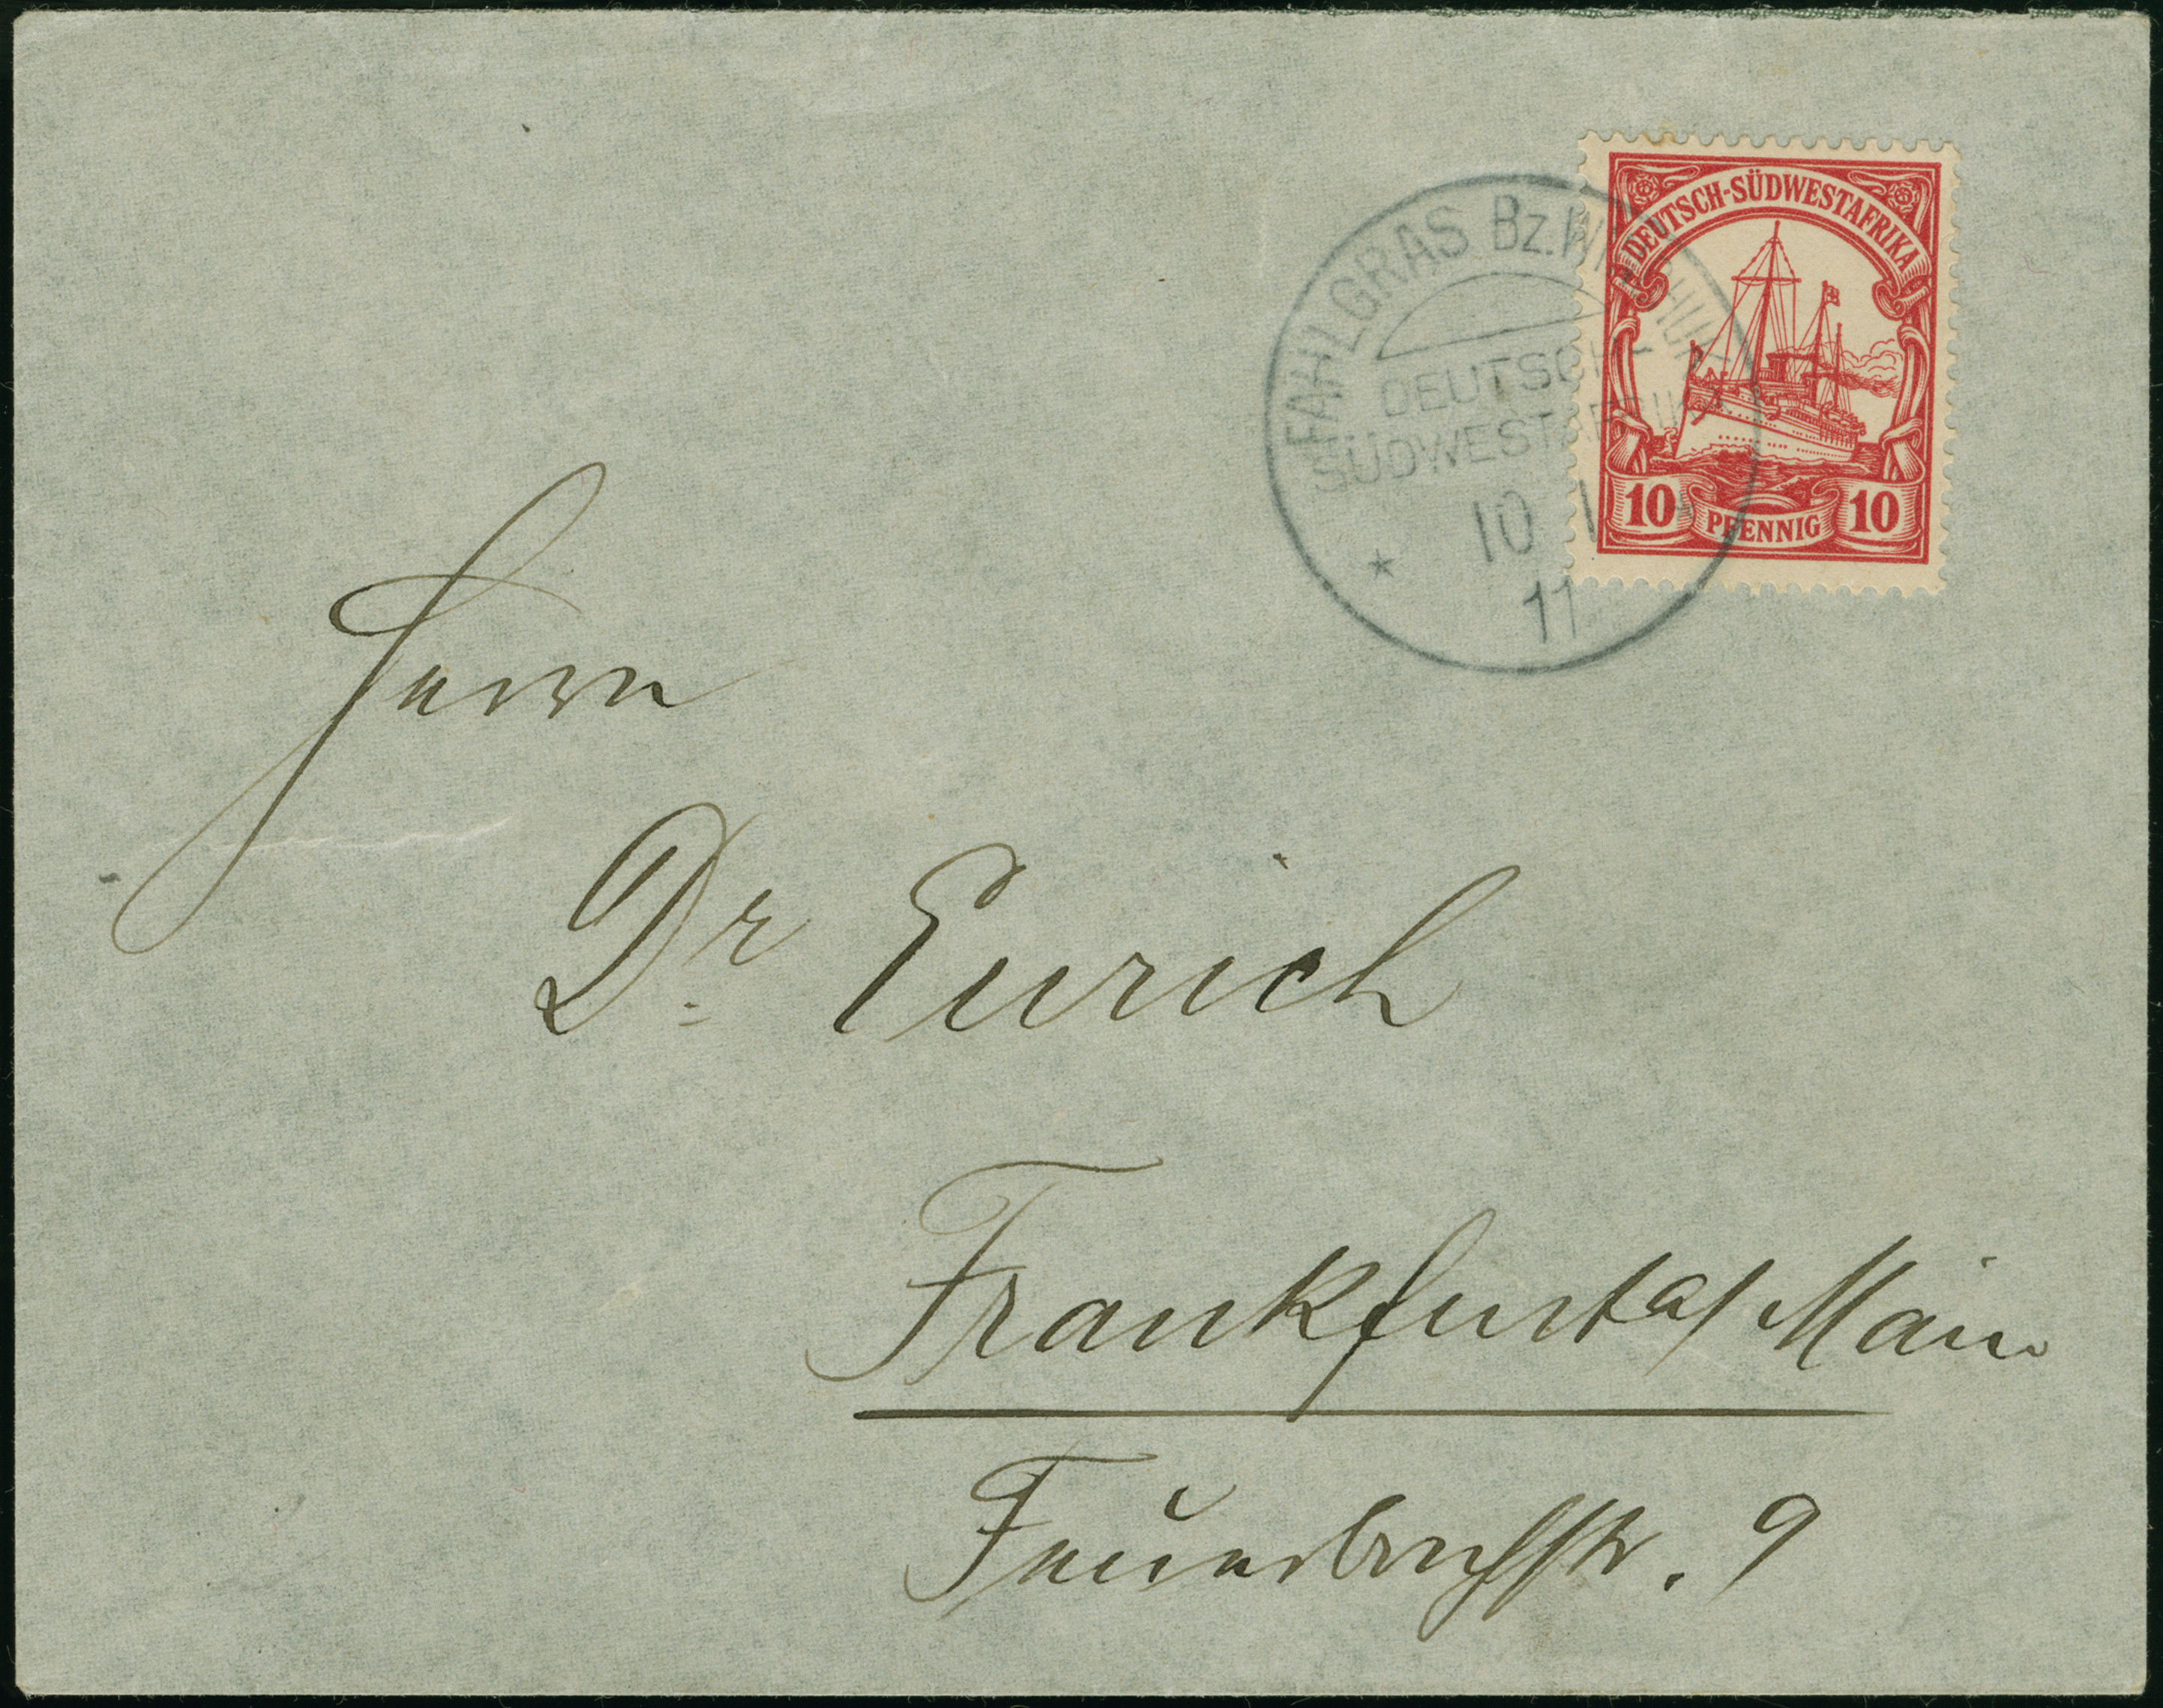 DEUTSCH-SÜDWESTAFRIKA
10 PFENNIG 10
FAHLGRAS Bz. WINDHUK
DEUTSCH-
SÜDWESTAFRIKA
10 1
11
Herrn
Dr. Eurich
Frankfurt a/Main
Feuerbachstr. 9